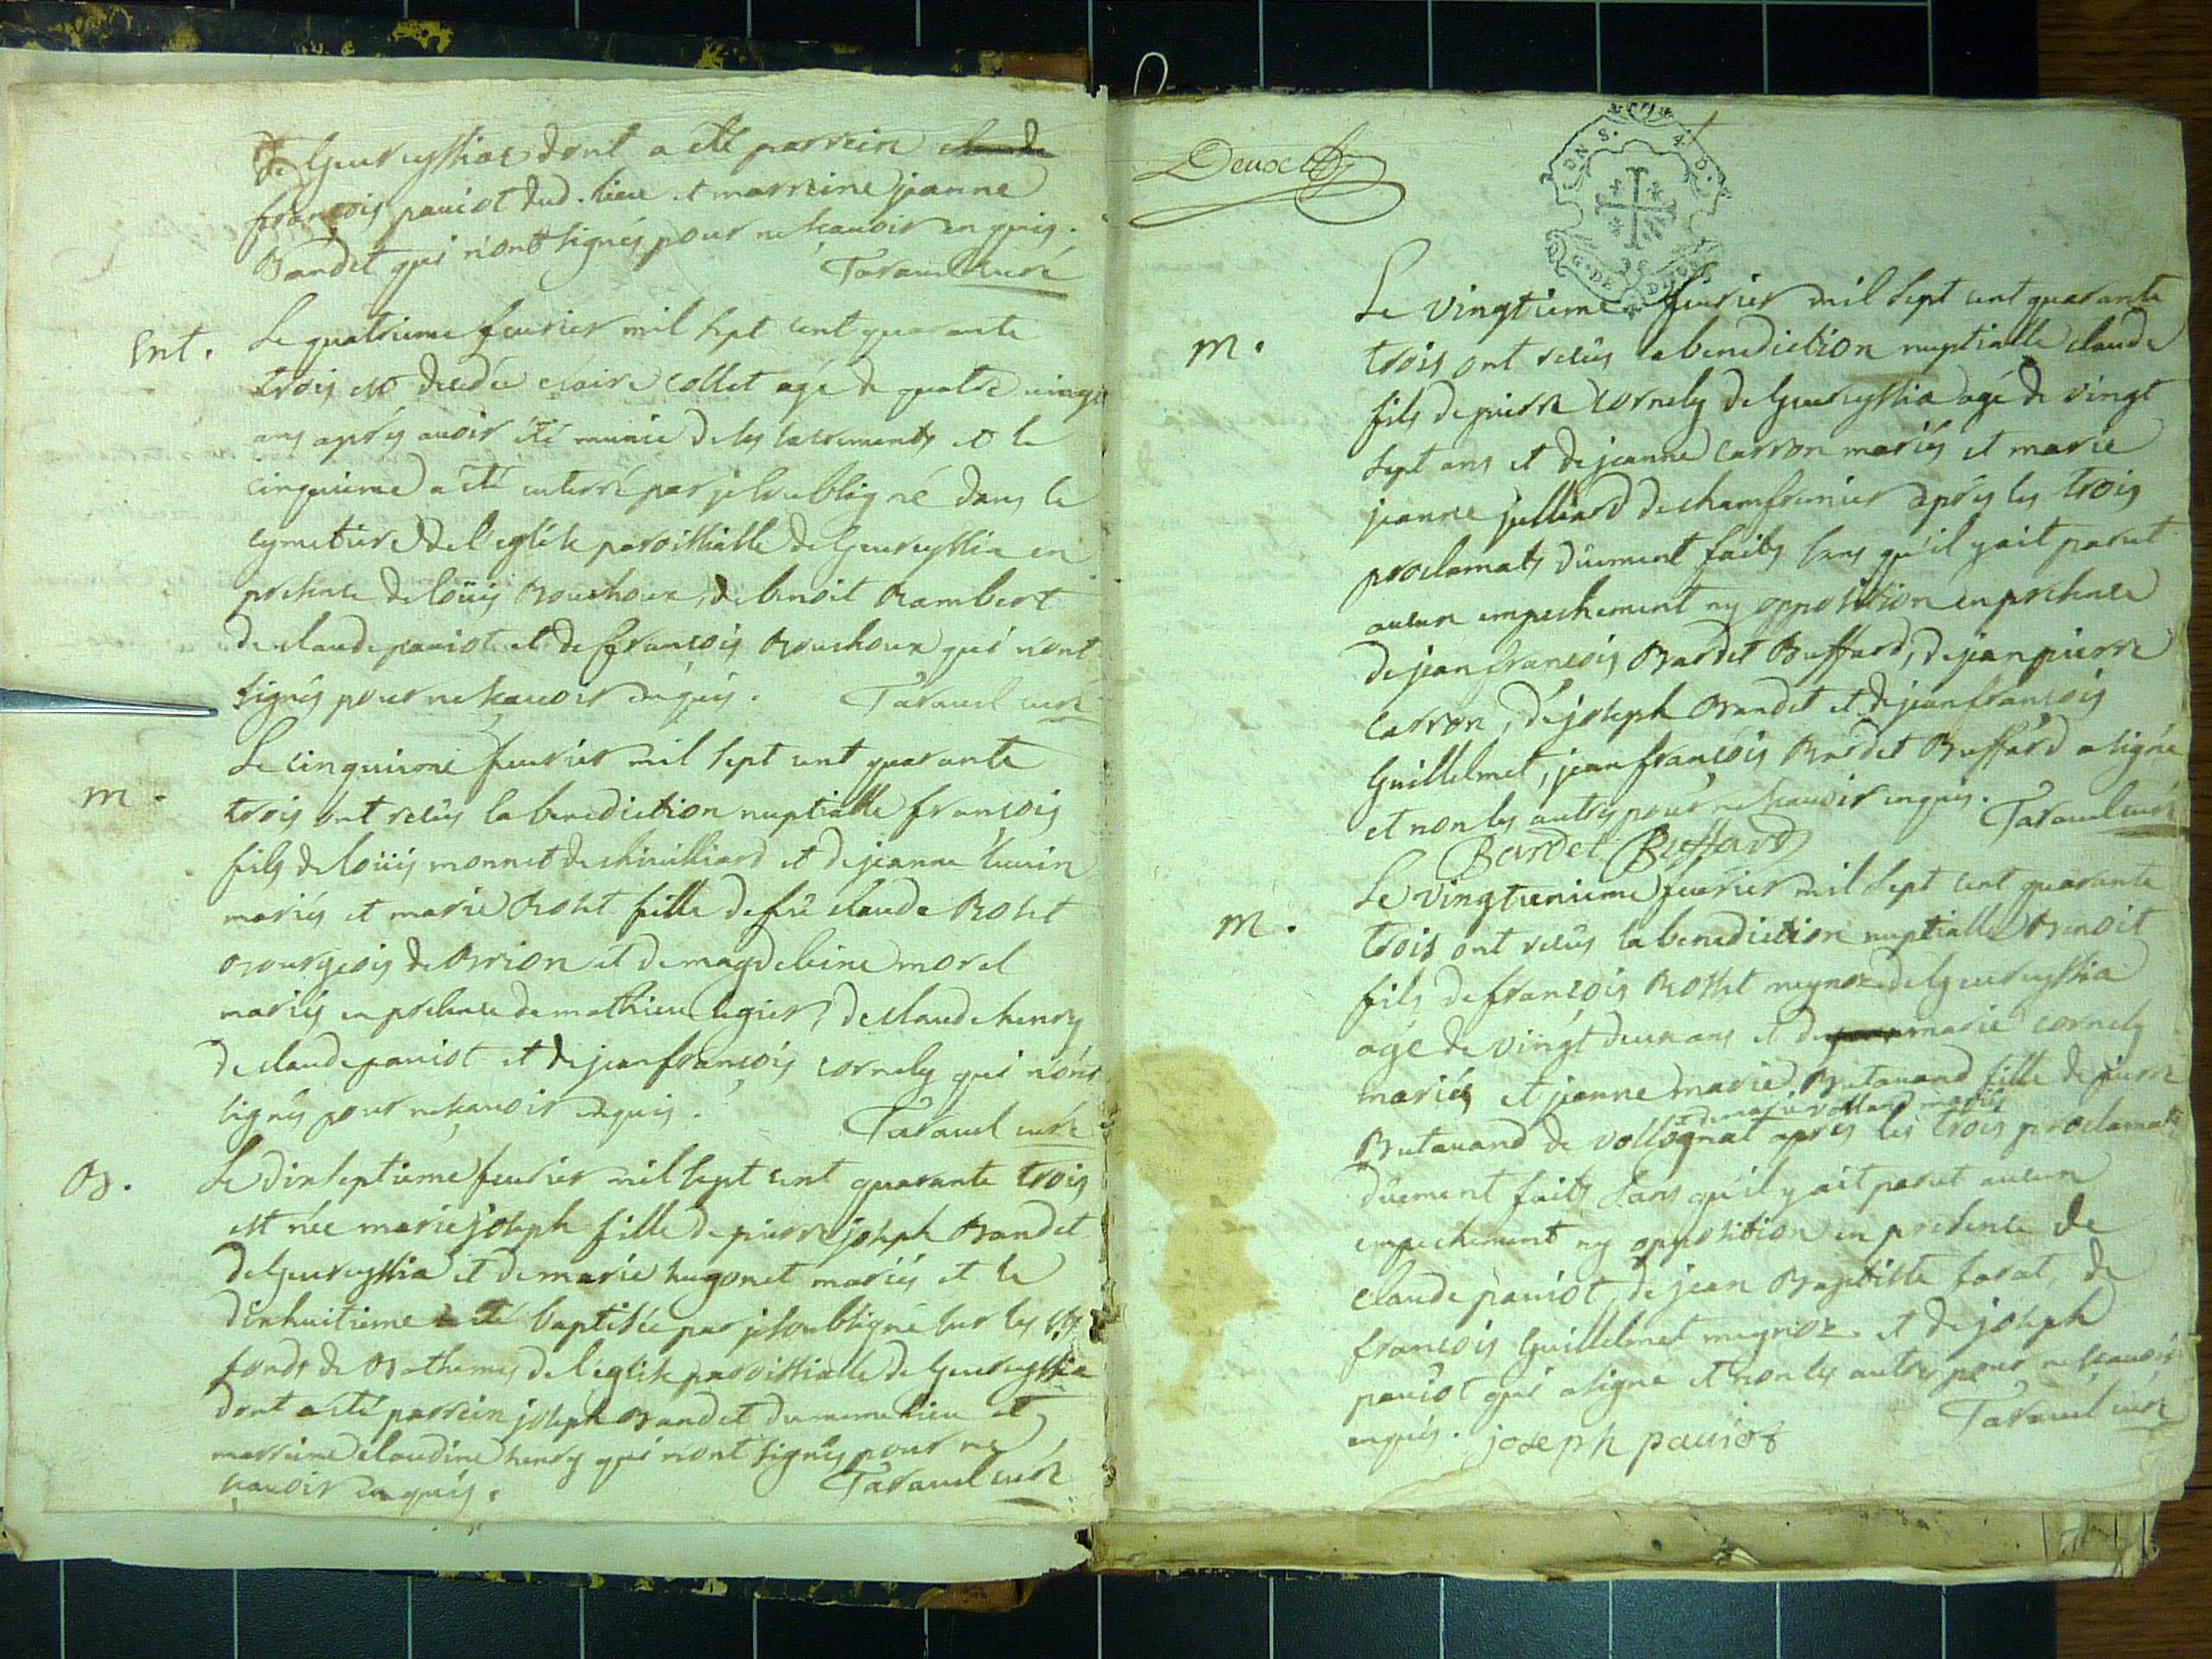 de Geureyssiat dont a été parrein claude
françois paviot dud. lieu et marreine jeanne
Bandet qui n'ont signés pour ne scavoir enquis.
Taravel curé
Ent.
Le quatrieme fevrier mil sept cent quarante
trois est decedée claire collet agé de quatre vingt
ans aprés avoir été munie de ses sacrements et le
cinquieme a été enterré par je soubsigné dans le
cymetiere de l'eglise paroissialle de Geureyssia en
presence de loüis Bouchoux, de benoit Rambert
de claude paviot et de françois Bouchoux qui n'ont
signés pour ne scavoir enquis. Taravel curé
m.
Le cinquieme fevrier mil sept cent quarante
trois ont reçûs la benediction nuptialle françois
fils de loüis monnet de chivilliard et de jeanne
mariés et marie Roset fille de fû claude Roset
Bourgeois de Brion et de magdeleine morel
mariés en presence de mathieu legier, de claude henry
de claude paviot et de jean françois cornely qui n'ont
signés pour ne scavoir enquis.
Taravel curé
B.
Le dixseptieme fevrier mil sept cent quarante trois
est née marie joseph fille de pierre joseph Bandet
de Geureyssia et de marie hugonet mariés et le
dixhuitieme a été baptisée par je soubsigné sur les sts
fonds de Bathemes de l'eglise paroissialle de Geureyssia
dont a été parrein joseph Bandet du meme lieu et
marreine claudine henry qui n'ont signés pour ne
scavoir enquis. Taravel curé
Deux
G. DE
Le vingtieme fevrier mil sept cent quarante
m.
trois ont reçûs la benediction nuptialle claude
fils de pierre cornely de Geureyssia agé de vingt
sept ans et de jeanne carron mariés et marie
jeanne julliard de chamfromier aprés les trois
proclamats dûement faits sans qu'il y ait parut
aucun empechement ny opposition en presence
de jean françois Bardet Buffard, de jean pierre
carron, de joseph Bandet et de jean françois
Guillelmet, jean françois Bardet Buffard a signé
et non les autres pour ne scavoir enquis. Taravel curé
Bardet Buffard
Le vingtunieme fevrier mil sept cent quarante
m.
trois ont reçûs la benediction nuptialle Benoit
fils de françois Rosset mugnoz de Geureyssia
agé de vingt deux ans et de marie cornely
mariés et jeanne marie Butavand fille de pierre
de marie volland mariés
Butavand de vollognat aprés les trois proclamats
dûement faits sans qu'il y ait parut aucun
empechement ny opposition en presence de
claude paviot, de jean Baptiste favat, de
françois Guillelmet mugnoz et de joseph
paviot qui a signé et non les autres pour ne scavoir
enquis. joseph paviot Taravel curé